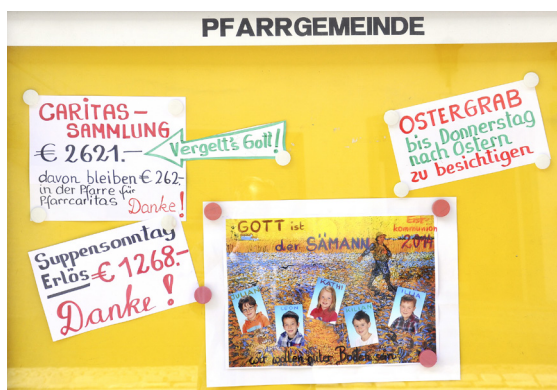 PFARRGEMEINDE
CARITAS-
SAMMLUNG
€ 2621.-
davon bleiben € 262,-
in der Pfarre für
Pfarrcaritas Danke!
Vergelt's Gott!
OSTERGRAB
bis Donnerstag
nach Ostern
zu besichtigen
Suppensonntag
Erlös € 1268.-
Danke!
GOTT ist
der SÄMANN
Erst-
kommunion
2011
KATHI
wir wollen guter Boden sein